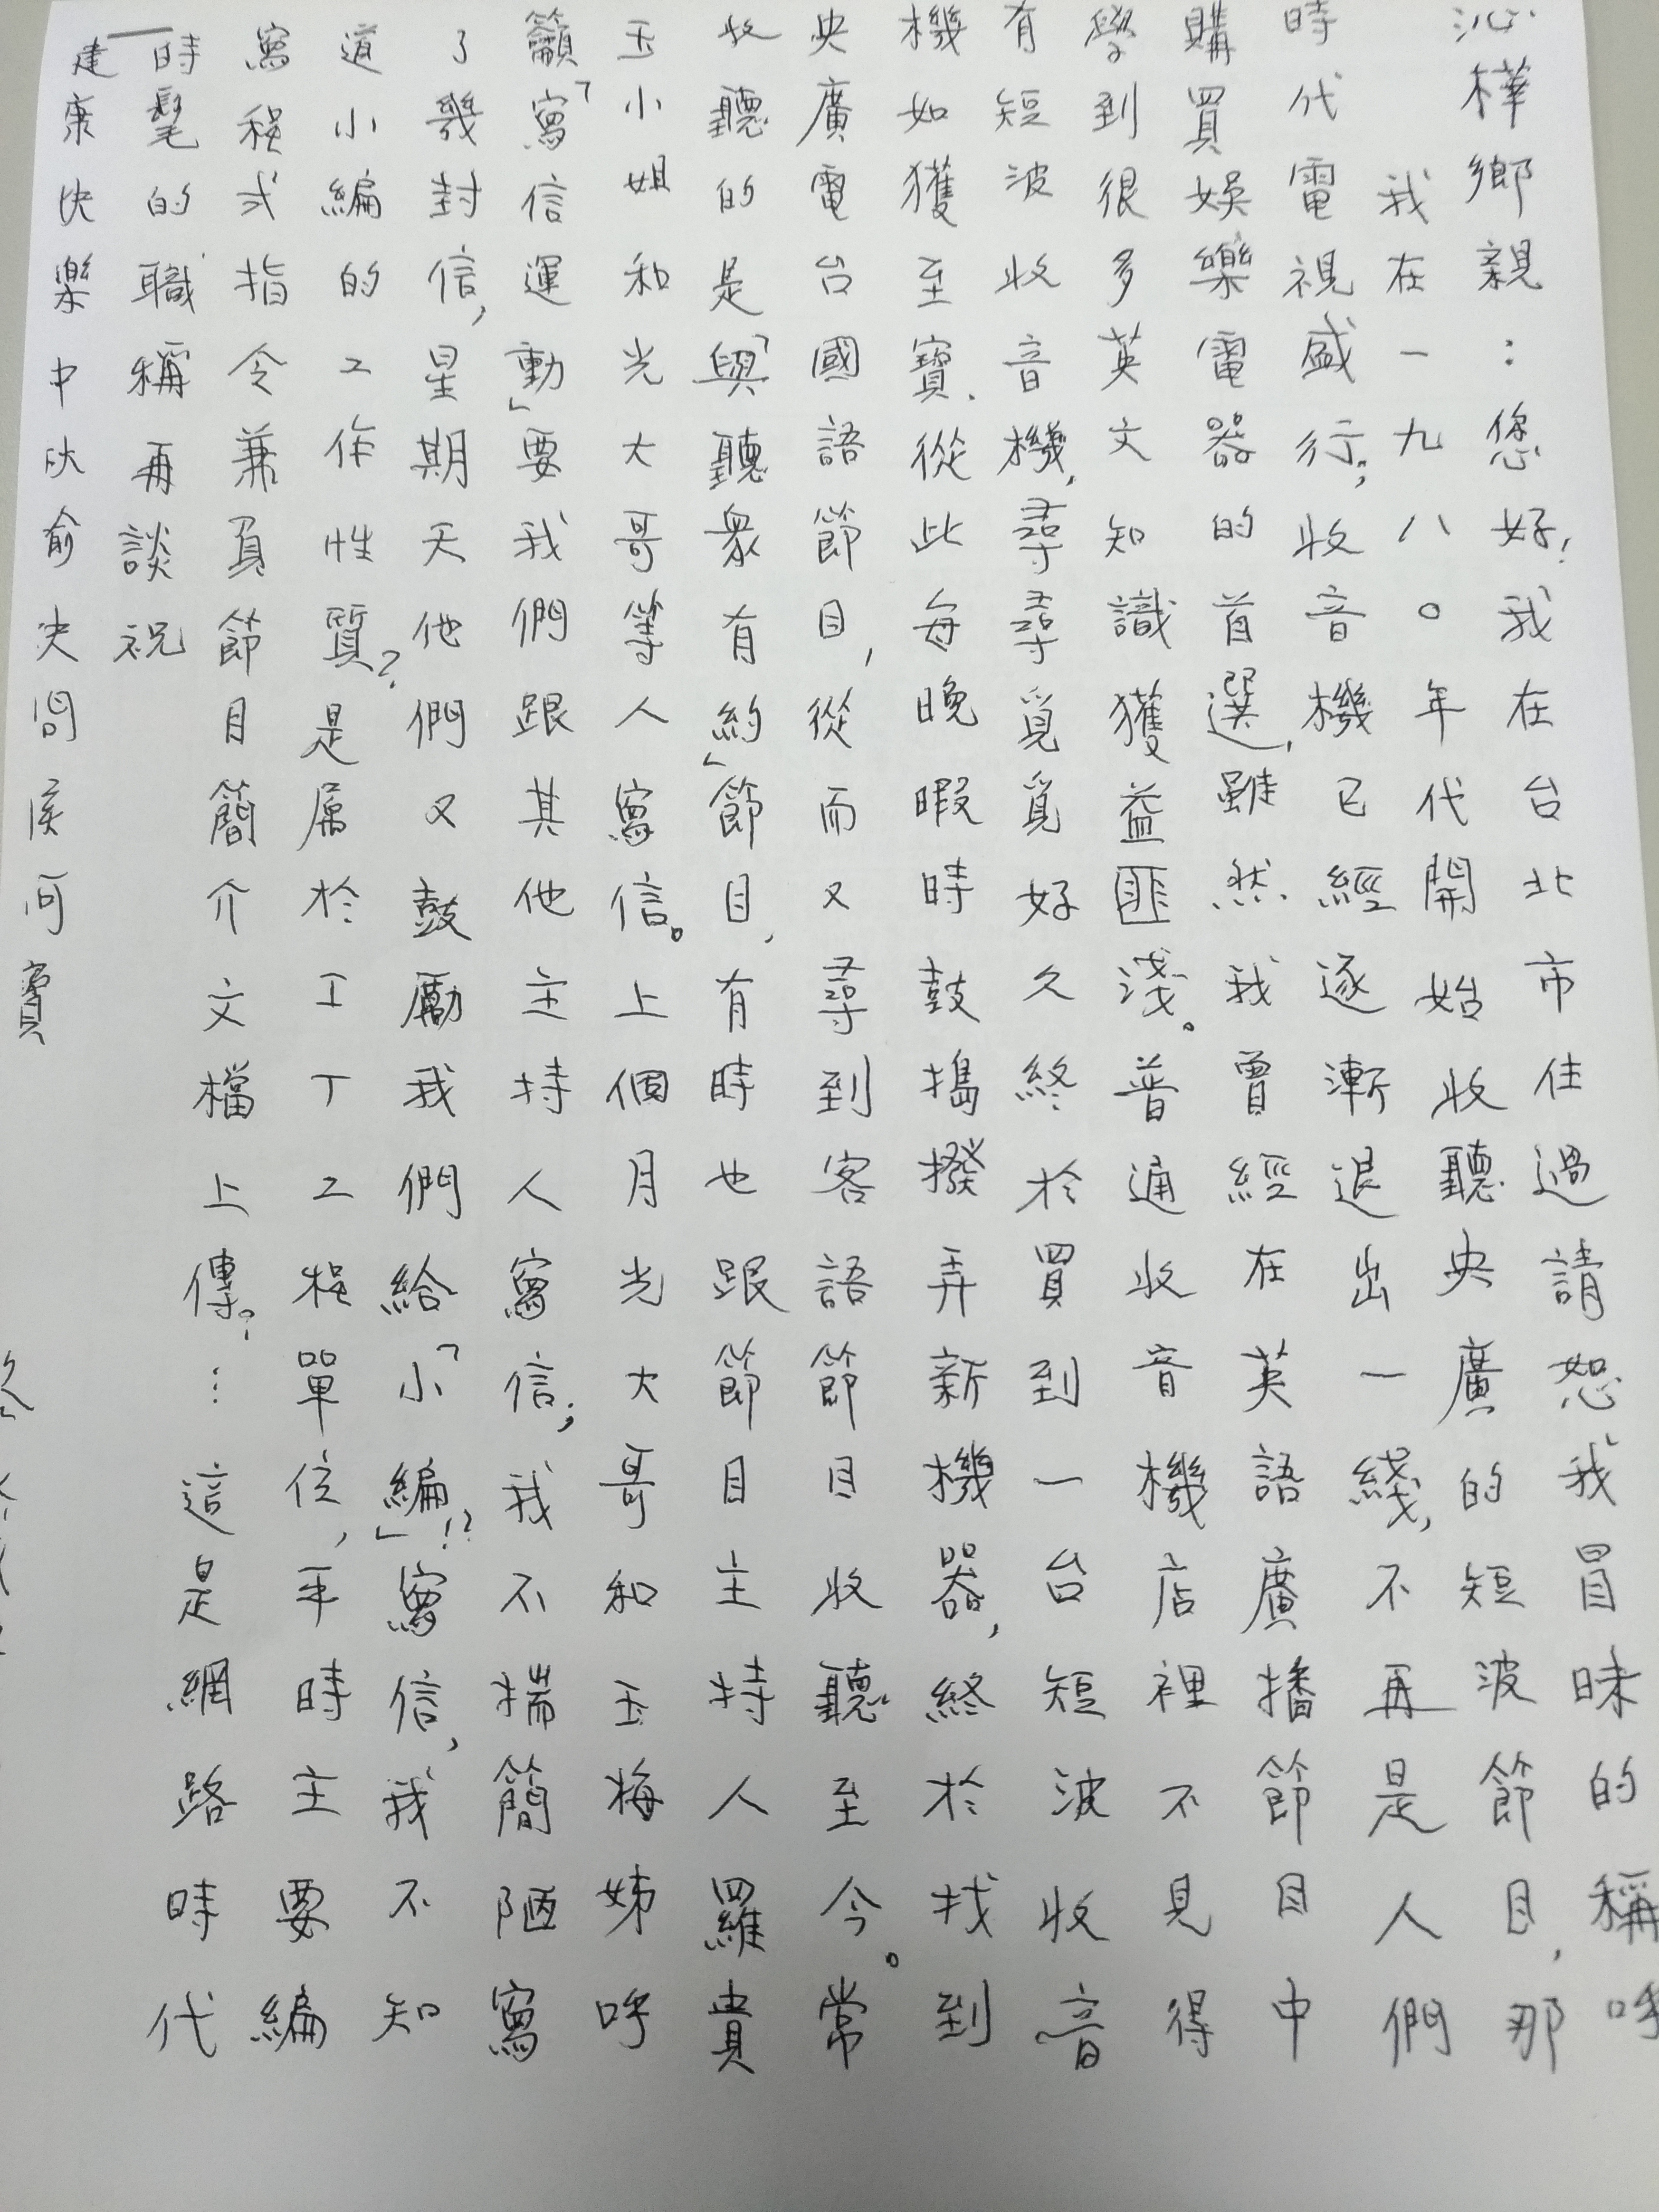 沁樺鄉親：您好！我在台北市住過請恕我冒昧的稱呼
我在一九八〇年代開始收聽央廣的短波節目，那
時代電視盛行，收音機已經逐漸退出一綫，不再是人們
購買娛樂電器的首選，雖然我曾經在英語廣播節目中
學到很多英文知識獲益匪淺。普通收音機店裡不見得
有短波收音機，尋尋覓覓好久終於買到一台短波收音
機如獲至寶．從此每晚暇時鼓搗撥弄新機器，終於找到
央廣電台國語節目，從而又尋到客語節目收聽至今。常
收聽的是「與聽衆有約」節目，有時也跟節目主持人羅貴
玉小姐和光大哥等人寫信。上個月光大哥和玉梅姊呼
籲「寫信運動」要我們跟其他主持人寫信；我不揣簡陋寫
了幾封信，星期天他們又鼓勵我們給「小編」！？寫信，我不知
道小編的工作性質？是屬於工丁工程單位，平時主要編
寫程式指令兼負節目簡介文檔上傳？…這是網路時代
時髦的職稱再談祝
建康快樂 中